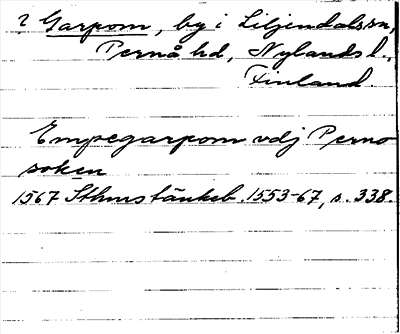 ? Garpom, by i Liljendals sn,
Pernå hd, Nylands l.,
Finland.
Empegarpom vdj Perno
soken
1567 Sthms tänkeb. 1553-67, s. 338.